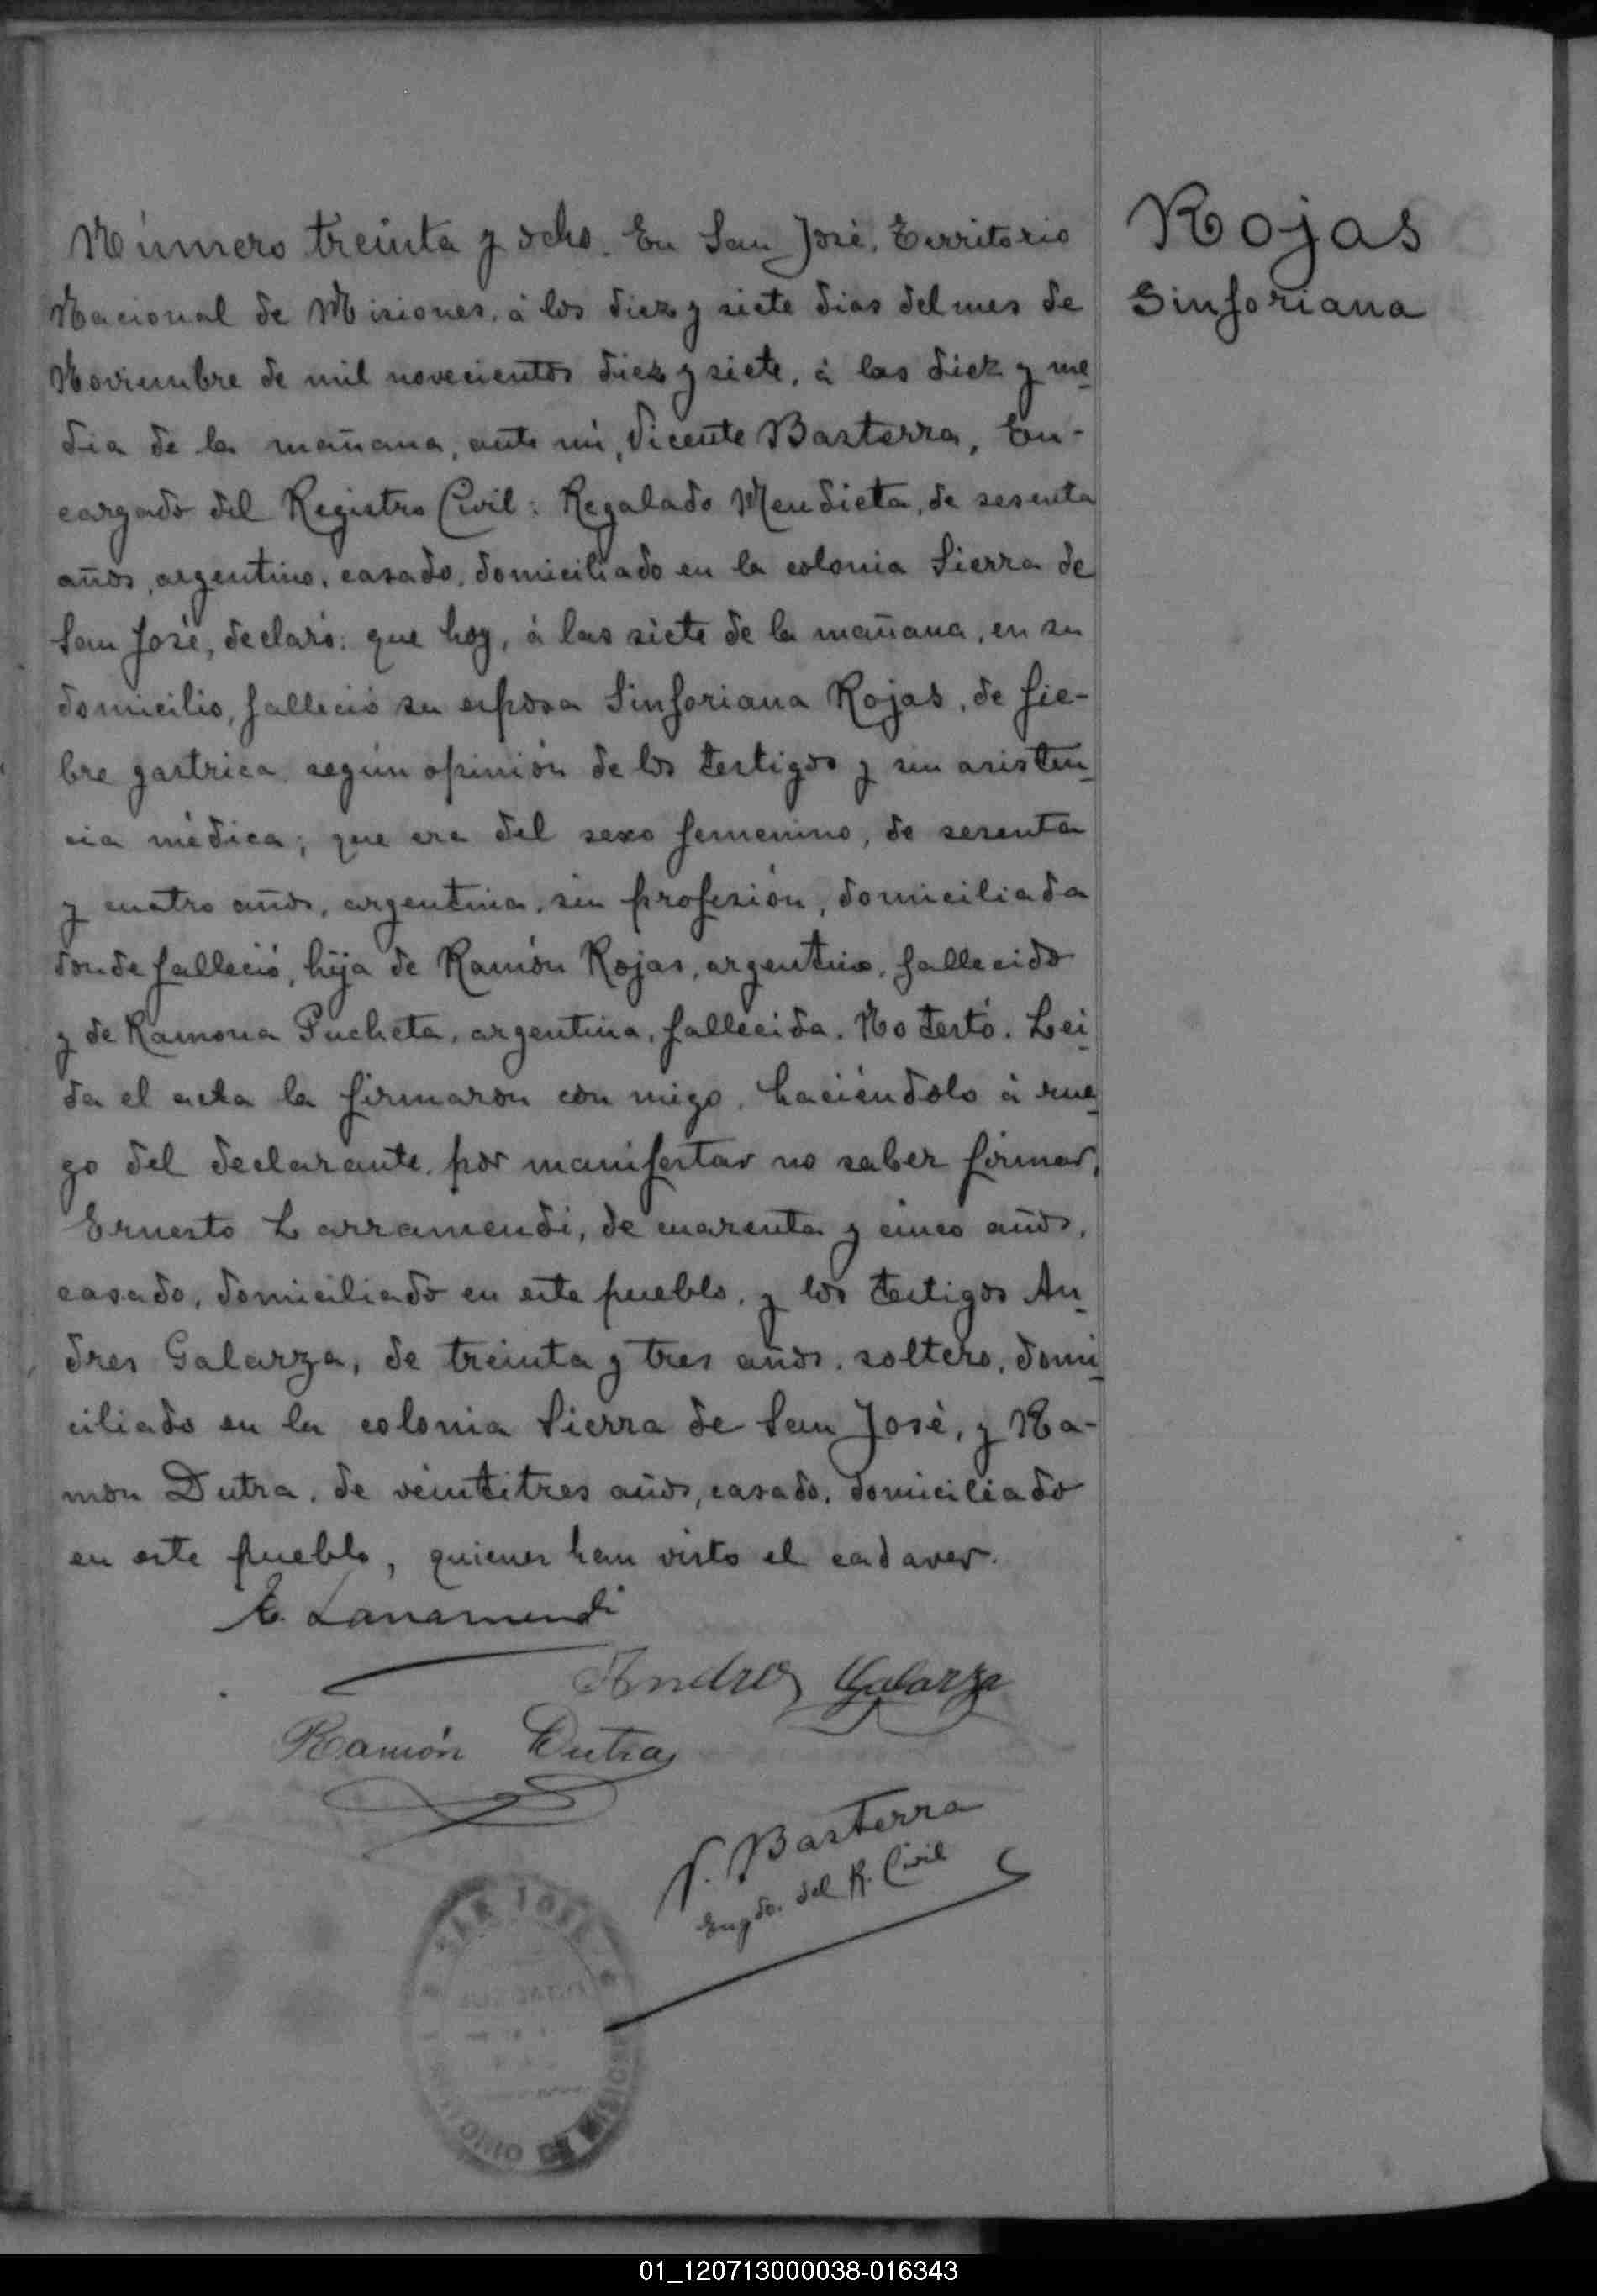 Número treinta y ocho. En San José, Territorio
Nacional de Misiones, á los diez y siete dias del mes de
Noviembre de mil novecientos diez y siete, á las diez y me
dia de la mañana, ante mi, Vicente Basterra, En-
cargado del Registro Civil: Regalado Mendieta, de sesenta
años, argentino, casado, domiciliado en la colonia Sierra de
San José, declaró: que hoy, á las siete de la mañana, en su
domicilio, falleció su esposa Sinforiana Rojas, de fie-
bre gastrica según opinión de los testigos y sin asisten
cia médica; que era del sexo femenino, de sesenta
y cuatro años, argentina, sin profesión, domiciliada
donde falleció, hija de Ramón Rojas, argentino, fallecido
y de Ramona Pucheta, argentina, fallecida. No testó. Lei
da el acta la firmaron con migo, haciéndolo á rue
go del declarante, por manifestar no saber firmar,
Ernesto Larramendi, de cuarenta y cinco años,
casado, domiciliado en este pueblo, y los testigos An
dres Galarza, de treinta y tres años, soltero, domi
ciliado en la colonia Sierra de San José, y Ra-
mon Dutra, de veintitres años, casado, domiciliado
en este pueblo, quienes han visto el cadaver.
E. Larramendi
Andres Galarza
Ramón Dutra
V. Basterra
Engdo. del R. Civil
SAN JOSE
DE MISIONES
Rojas
Sinforiana
01_120713000038-016343